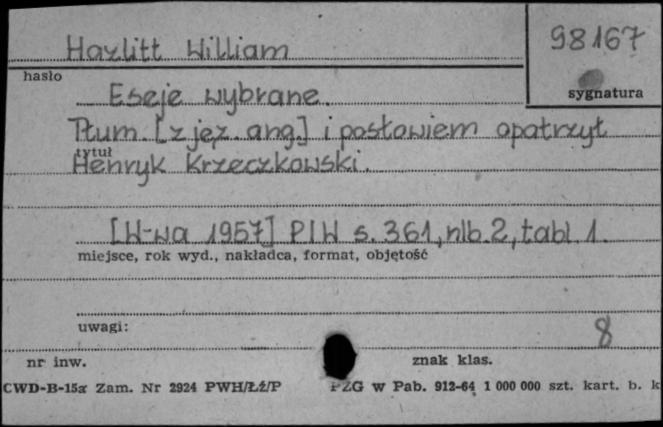 Hazlitt William
98167
hasło
sygnatura
Eseje wybrane.
Tłum. [z jęz. ang.] i posłowiem opatrzył
tytuł
Henryk Krzeczkowski.
[W-wa 1957] PIW s. 361, nlb. 2, tabl. 1.
miejsce, rok wyd., nakładca, format, objętość
uwagi:
8
nr inw.
znak klas.
CWD-B-15a Zam. Nr 2924 PWH/Łź/P
PZG w Pab. 912-64 1 000 000 szt. kart. b. k